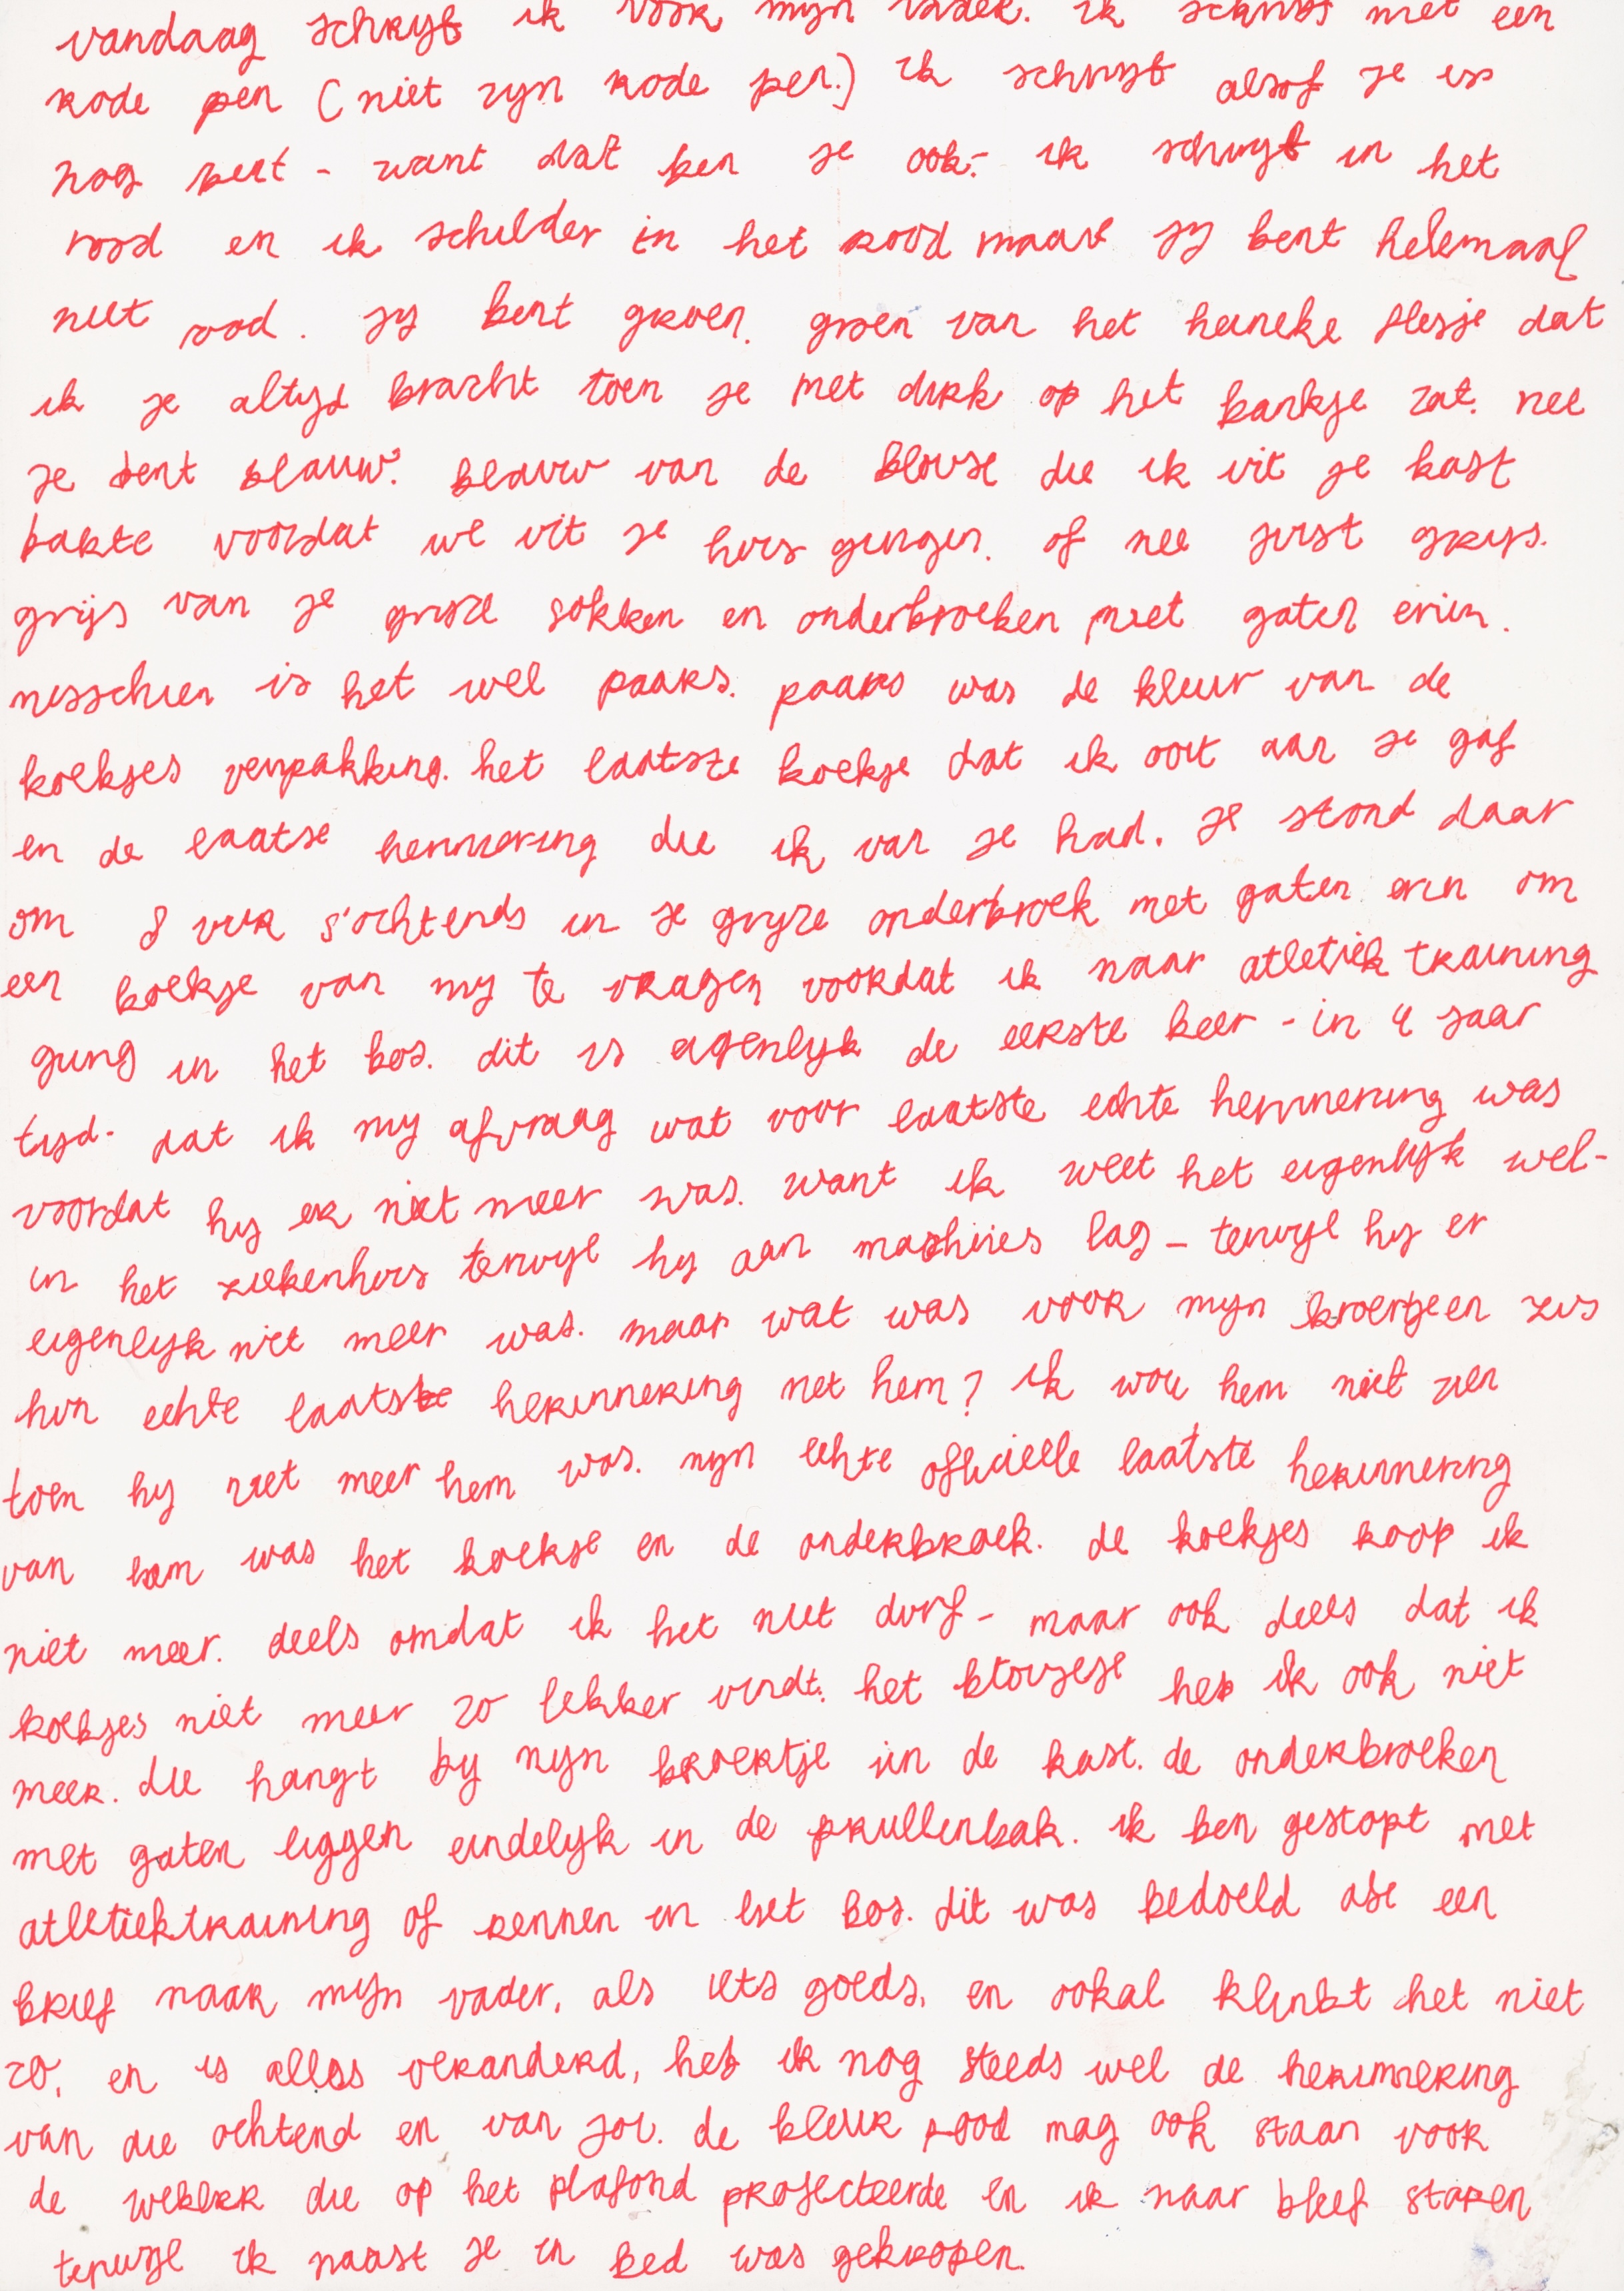 vandaag schrijf ik voor mijn vader. ik schrijf met een
rode pen (niet zijn rode pen.) ik schrijf alsof je er
nog bent - want dat ben je ook.- ik schrijf in het
rood en ik schilder in het rood maar jij bent helemaal
niet rood. jij bent groen. groen van het heineke flesje dat
ik je altijd bracht toen je met dirk op het bankje zat. nee
je bent blauw. blauw van de blouse die ik uit je kast
pakte voordat we uit je huis gingen. of nee juist grijs.
grijs van je grijze sokken en onderbroeken met gaten erin.
misschien is het wel paars. paars was de kleur van de
koekjes verpakking. het laatste koekje dat ik ooit aan je gaf
en de laatse herinnering die ik van je had. je stond daar
om 8 uur s'ochtends in je grijze onderbroek met gaten erin om
een koekje van mij te vragen voordat ik naar atletiek training
ging in het bos. dit is eigenlijk de eerste keer - in 4 jaar
tijd - dat ik mij afvraag wat voor laatste echte herinnering was
voordat hij er niet meer was. want ik weet het eigenlijk wel -
in het ziekenhuis terwijl hij aan machines lag - terwijl hij er
eigenlijk niet meer was. maar wat was voor mijn broertje en zus
hun echte laatste herinnering met hem? ik wou hem niet zien
toen hij niet meer hem was. mijn echte officielle laatste herinnering
van hem was het koekje en de onderbroek. de koekjes koop ik
niet meer. deels omdat ik het niet durf - maar ook deels dat ik
koekjes niet meer zo lekker vindt. het blousje heb ik ook niet
meer. die hangt bij mijn broertje in de kast. de onderbroeken
met gaten liggen eindelijk in de prullenbak. ik ben gestopt met
atletiektraining of rennen in het bos. dit was bedoeld als een
brief naar mijn vader, als iets goeds, en ookal klinkt het niet
zo, en is alles veranderd, heb ik nog steeds wel de herinnering
van die ochtend en van jou. de kleur rood mag ook staan voor
de wekker die op het plafond projecteerde en ik naar bleef staren
terwijl ik naast je in bed was gekropen.